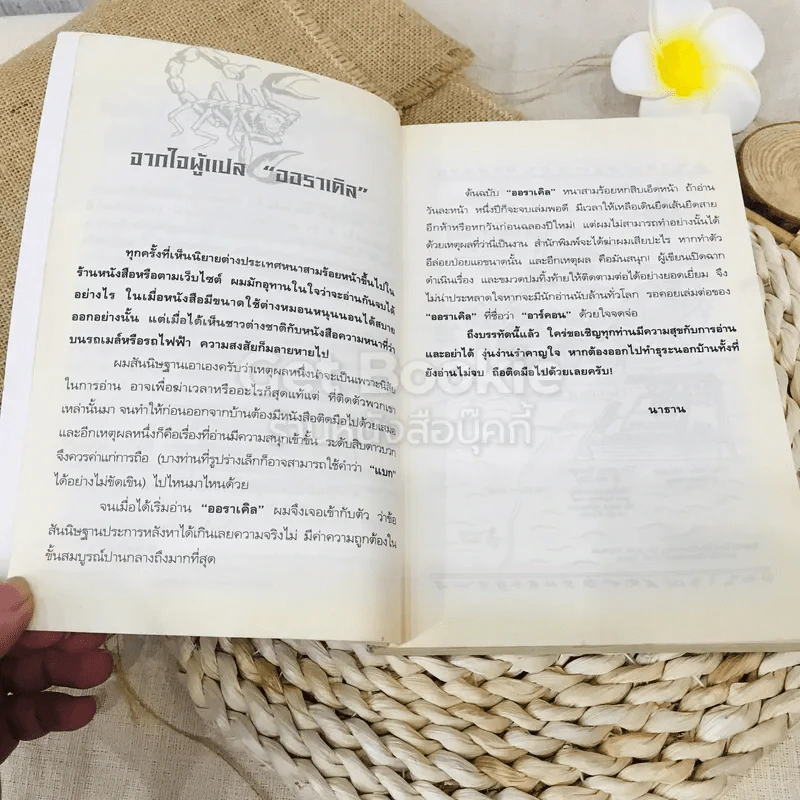 จากใจผู้แปล "ออราเคิล"
ทุกครั้งที่เห็นนิยายต่างประเทศหนาสามร้อยหน้าขึ้นไปใน
ร้านหนังสือหรือตามเว็บไซต์ ผมมักอุทานในใจว่าจะอ่านกันจบได้
อย่างไร ในเมื่อหนังสือมีขนาดใช้ต่างหมอนหนุนนอนได้สบาย
ออกอย่างนั้น แต่เมื่อได้เห็นชาวต่างชาติกับหนังสือความหนาที่ว่า
บนรถเมล์หรือรถไฟฟ้า ความสงสัยก็มลายหายไป
ผมสันนิษฐานเอาเองครับว่าเหตุผลหนึ่งน่าจะเป็นเพราะนิสัย
ในการอ่าน อาจเพื่อฆ่าเวลาหรืออะไรก็สุดแท้แต่ ที่ติดตัวพวกเขา
เหล่านั้นมา จนทำให้ก่อนออกจากบ้านต้องมีหนังสือติดมือไปด้วยเสมอ
และอีกเหตุผลหนึ่งก็คือเรื่องที่อ่านมีความสนุกเข้าขั้น ระดับสิบดาวบวก
จึงควรค่าแก่การถือ (บางท่านที่รูปร่างเล็กก็อาจสามารถใช้คำว่า "แบก"
ได้อย่างไม่ขัดเขิน) ไปไหนมาไหนด้วย
จนเมื่อได้เริ่มอ่าน "ออราเคิล" ผมจึงเจอเข้ากับตัว ว่าข้อ
สันนิษฐานประการหลังหาได้เกินเลยความจริงไม่ มีค่าความถูกต้องใน
ขั้นสมบูรณ์ปานกลางถึงมากที่สุด
ต้นฉบับ "ออราเคิล" หนาสามร้อยหกสิบเอ็ดหน้า ถ้าอ่าน
วันละหน้า หนึ่งปีก็จะจบเล่มพอดี มีเวลาให้เหลือเดินยืดเส้นยืดสาย
อีกห้าหรือหกวันก่อนฉลองปีใหม่! แต่ผมไม่สามารถทำอย่างนั้นได้
ด้วยเหตุผลที่ว่านี่เป็นงาน สำนักพิมพ์จะได้ฆ่าผมเสียปะไร หากทำตัว
อีล่อยป่อยแอขนาดนั้น และอีกเหตุผล คือมันสนุก! ผู้เขียนเปิดฉาก
ดำเนินเรื่อง และขมวดปมทิ้งท้ายให้ติดตามต่อได้อย่างยอดเยี่ยม จึง
ไม่น่าประหลาดใจหากจะมีนักอ่านนับล้านทั่วโลก รอคอยเล่มต่อของ
"ออราเคิล" ที่ชื่อว่า "อาร์คอน" ด้วยใจจดจ่อ
ถึงบรรทัดนี้แล้ว ใคร่ขอเชิญทุกท่านมีความสุขกับการอ่าน
และอย่าได้ งุ่นง่านรำคาญใจ หากต้องออกไปทำธุระนอกบ้านทั้งที่
ยังอ่านไม่จบ ถือติดมือไปด้วยเลยครับ!
นาธาน
Get Bookie
ร้านหนังสือบุ๊คกี้